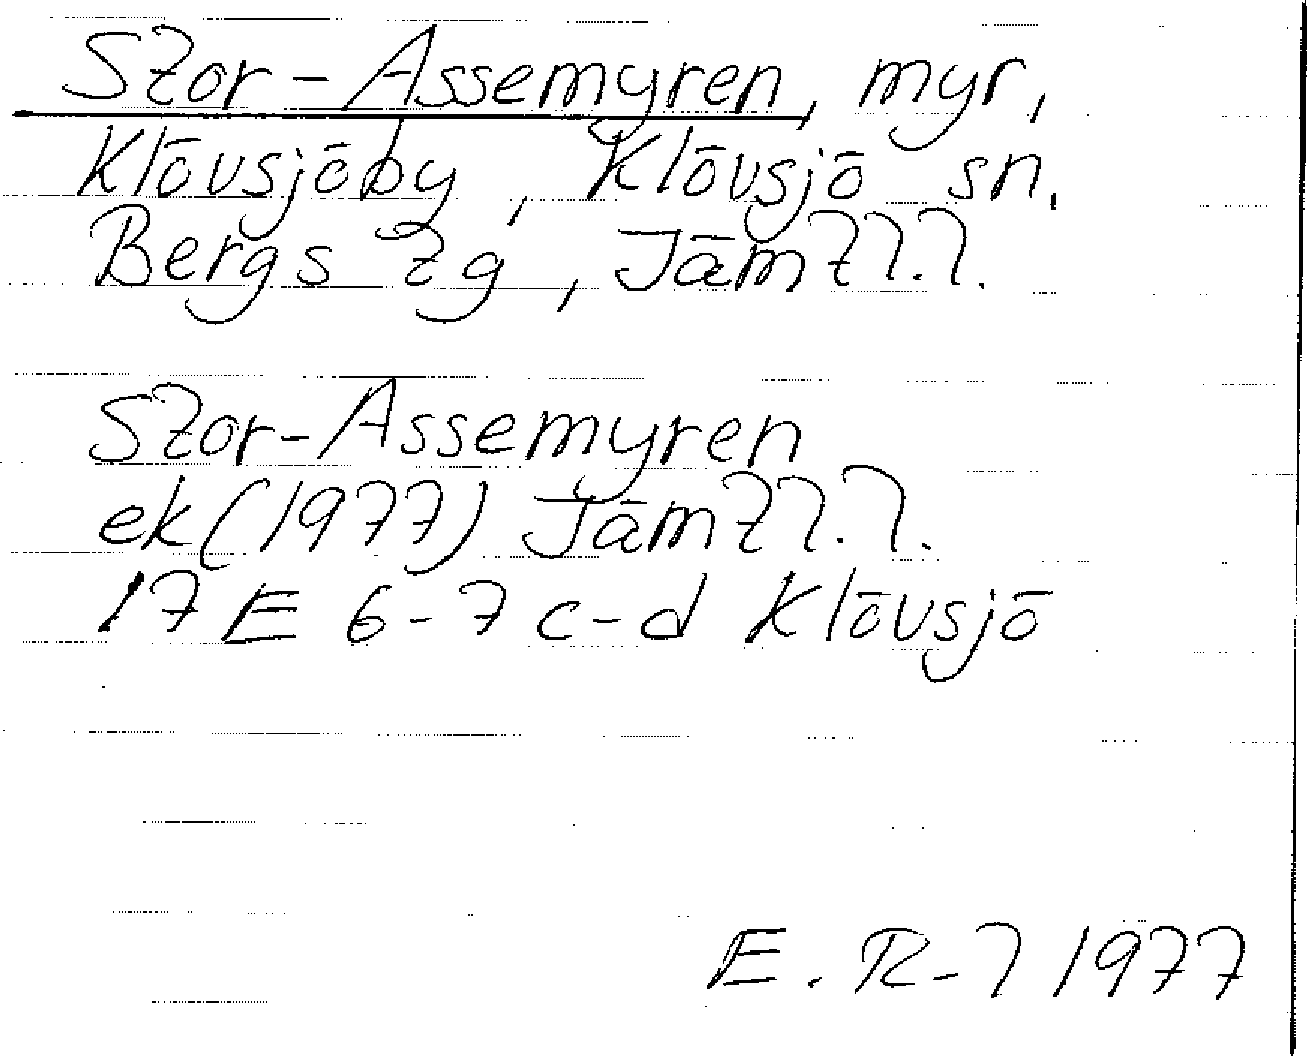 Stor-Assemyren, myr,
Klövsjöby, Klövsjö sn.
Bergs tg, Jämtl.l.
Stor-Assemyren
ek (1977) Jämtl.l.
17 E 6-7 c-d Klövsjö
E. R-l 1977